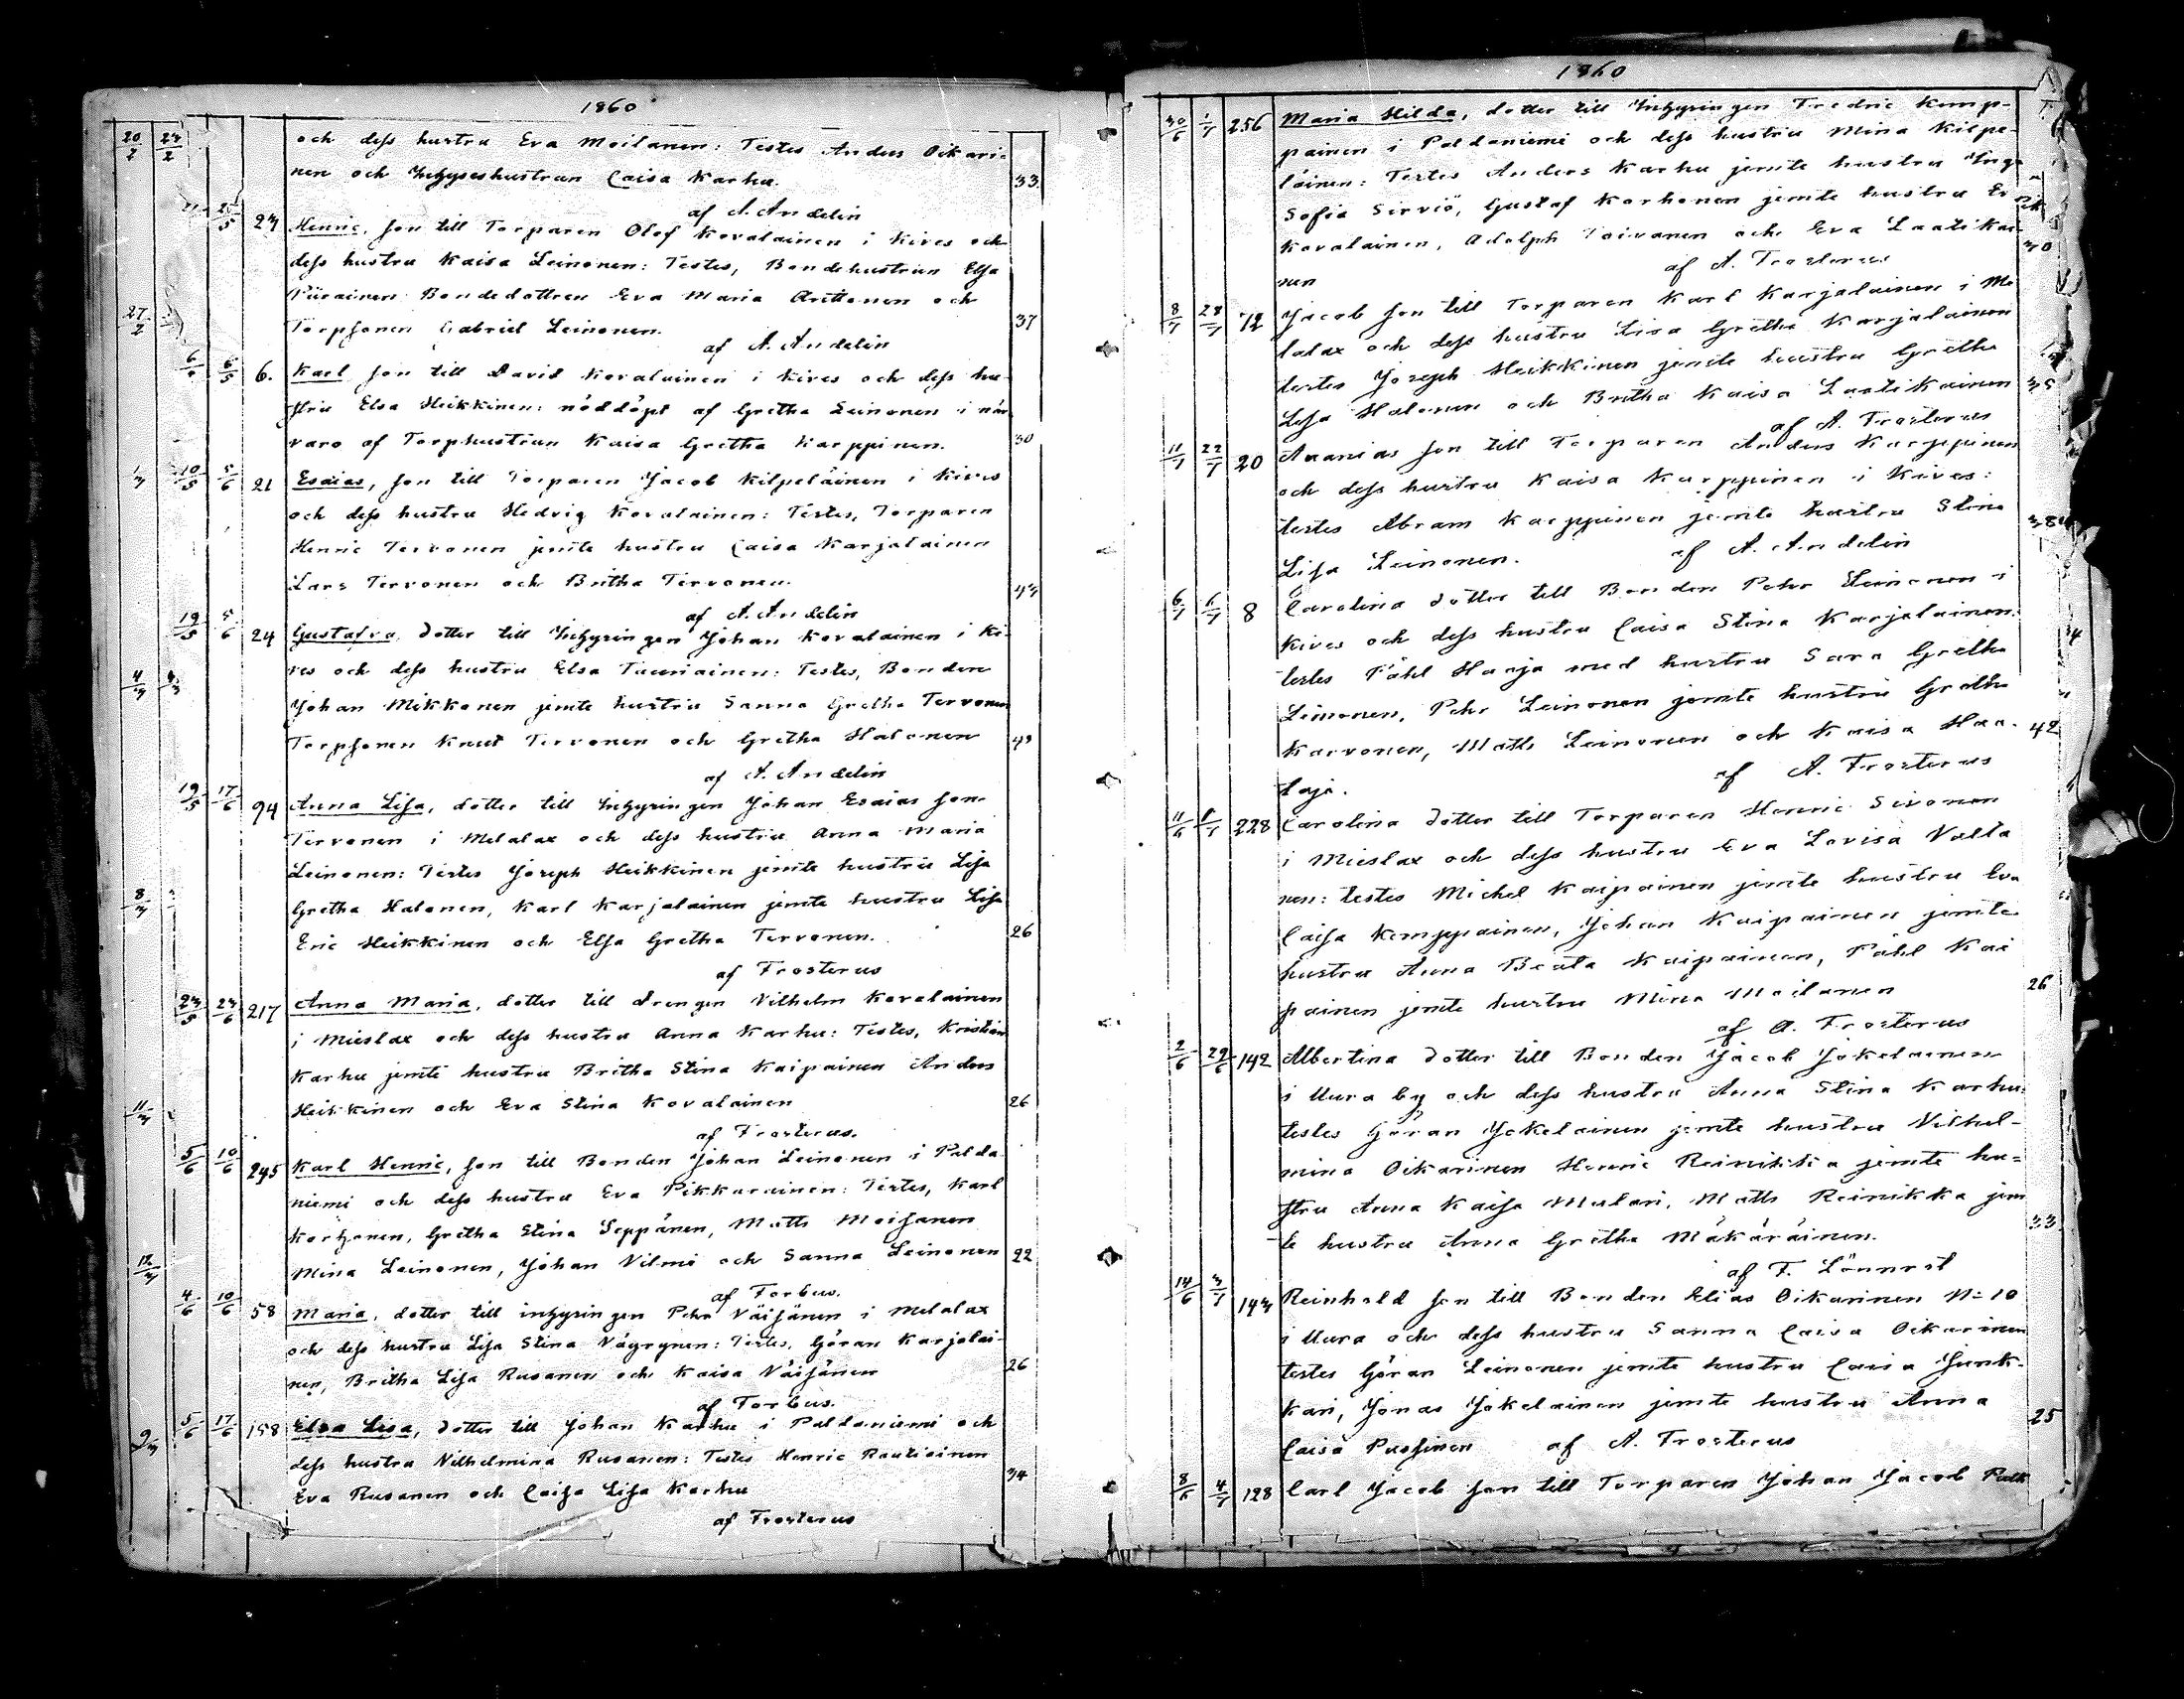 1860
20/2 23/2 och dess hustru Eva Moilanen: Testes Anders Oikari-
nen och Inhyseshustrun Caisa Karhu. 33
af A. Andelin
23 Henric, son till Torparen Olof Kovalainen i Kives och
dess hustru Kaisa Leinonen: Testes, Bondehustrun Elsa
Piirainen Bondedottren Eva Maria Anttonen och
27/2 Torpsonen Gabriel Leinonen. 37
af A. Andelin
6/5 6. Karl son till David Kovalainen i Kives och dess hu-
stru Elsa Heikkinen: nöddöpt af Gretha Leinonen i när
varo af Torphustrun Kaisa Gretha Karppinen. 30
10/5 5/6 21 Esaias, son till Torparen Jacob Kilpeläinen i Kives
och dess hustru Hedvig Kovalainen: Testes, Torparen
Henric Tervonen jemte hustru Caisa Karjalainen
Lars Tervonen och Britha Tervonen. 43
af A. Andelin
19/5 5/6 24 Gustafva, dotter till Inhysingen Johan Kovalainen i Ki-
ves och dess hustru Elsa Tauriainen: Testes, Bonden
4/3 Johan Mikkonen jemte hustru Sanna Gretha Tervonen
Torpsonen Knut Tervonen och Gretha Halonen 43
af A. Andelin
19/5 17/6 94 Anna Lisa, dotter till Inhysingen Johan Esaias son
Tervonen i Melalax och dess hustru Anna Maria
Leinonen: Testes Joseph Heikkinen jemte hustru Lisa
8/3 Gretha Halonen, Karl Karjalainen jemte hustru Lisa
Eric Heikkinen och Elsa Gretha Tervonen. 26
af Frosterus
23/5 23/6 217 Anna Maria, dotter till drengen Vilhelm Kovalainen
i Mieslax och dess hustru Anna Karhu: Testes, Kristian
Karhu jemte hustru Britha Stina Kaipainen Anders
11/3 Heikkinen och Eva Stina Kovalainen 26
af Frosterus.
5/6 10/6 245 Karl Henric, son till Bonden Johan Leinonen i Palda
niemi och dess hustru Eva Pikkarainen: Testes, Karl
Korhonen, Gretha Stina Seppänen, Matts Moisanen
Mina Leinonen, Johan Vilmi och Sanna Leinonen 22
af Forbus.
4/6 10/6 58 Maria, dotter till inhysingen Pehr Väisänen i Melalax
och dess hustru Lisa Stina Väyrynen: Testes, Göran Karjalai-
nen, Britha Lisa Rusanen och Kaisa Väisänen 26
af Forbus.
5/6 17/6 158 Elsa Lisa, dotter till Johan Karhu i Paldaniemi och
dess hustru Vilhelmina Rusanen: Testes Henric Rautiainen
Eva Rusanen och Caisa Lisa Karhu 34
af Frosterus
1860
30/6 1/7 256 Maria Hilda, dotter till Inhysingen Fredric Kemp-
painen i Paldaniemi och dess hustru Mina Kilpe-
läinen: Testes Anders Karhu jemte hustru Inga
Sofia Sirviö, Gustaf Korhonen jemte hustru Er
Kovalainen, Adolph Toivanen och Eva Laatikai- 30
nen af A. Frosterus
72 Jacob son till Torparen Karl Karjalainen i Me
lalax och dess hustru Lisa Gretha Karjalainen
testes Joseph Heikkinen jemte hustru Gretha
Lisa Halonen och Britha Kaisa Laatikainen 35
af A. Frosterus
11/7 22/7 20 Ananias son till Torparen Anders Karppinen
och dess hustru Kaisa Karppinen i Kives:
testes Abram Karppinen jemte hustru Stina
Lisa Leinonen. af A. Andelin
8 Carolina dotter till Bonden Pehr Leinonen i
Kives och dess hustru Caisa Stina Karjalainen:
testes Påhl Haaja med hustru Sara Gretha
Leinonen, Pehr Leinonen jemte hustru Gretha
Karvonen, Matts Leinonen och Kaisa Haa- 42
taja. af A. Frosterus
228 Carolina dotter till Torparen Henric Sivonen
i Mieslax och dess hustru Eva Lovisa Valta
nen: testes Michel Kaipainen jemte hustru Eva
Caisa Kemppainen, Johan Kaipainen jemte
hustru Anna Beata Kaipainen, Påhl Kai
painen jemte hustru Mina Moilanen 26
af A. Frosterus
2/6 29/6 142 Albertina dotter till Bonden Jacob Jokelainen
i Uura by och dess hustru Anna Stina Karhu:
testes Göran Jokelainen jemte hustru Vilhel-
mina Oikarinen Henric Reinikka jemte hu=
stru Anna Kaisa Mulari, Matts Reinikka jem
te hustru Anna Gretha Mäkäräinen. 33
af F. Lönnrot
14/6 3/7 143 Reinhold son till Bonden Elias Oikarinen N=10
i Uura och dess hustru Sanna Caisa Oikarinen
testes Göran Leinonen jemte hustru Caisa Junk-
kari, Jonas Jokelainen jemte hustru Anna
Caisa Pussinen af A. Frosterus 25
8/6 4/7 128 Carl Jacob son till Torparen Johan Jacob